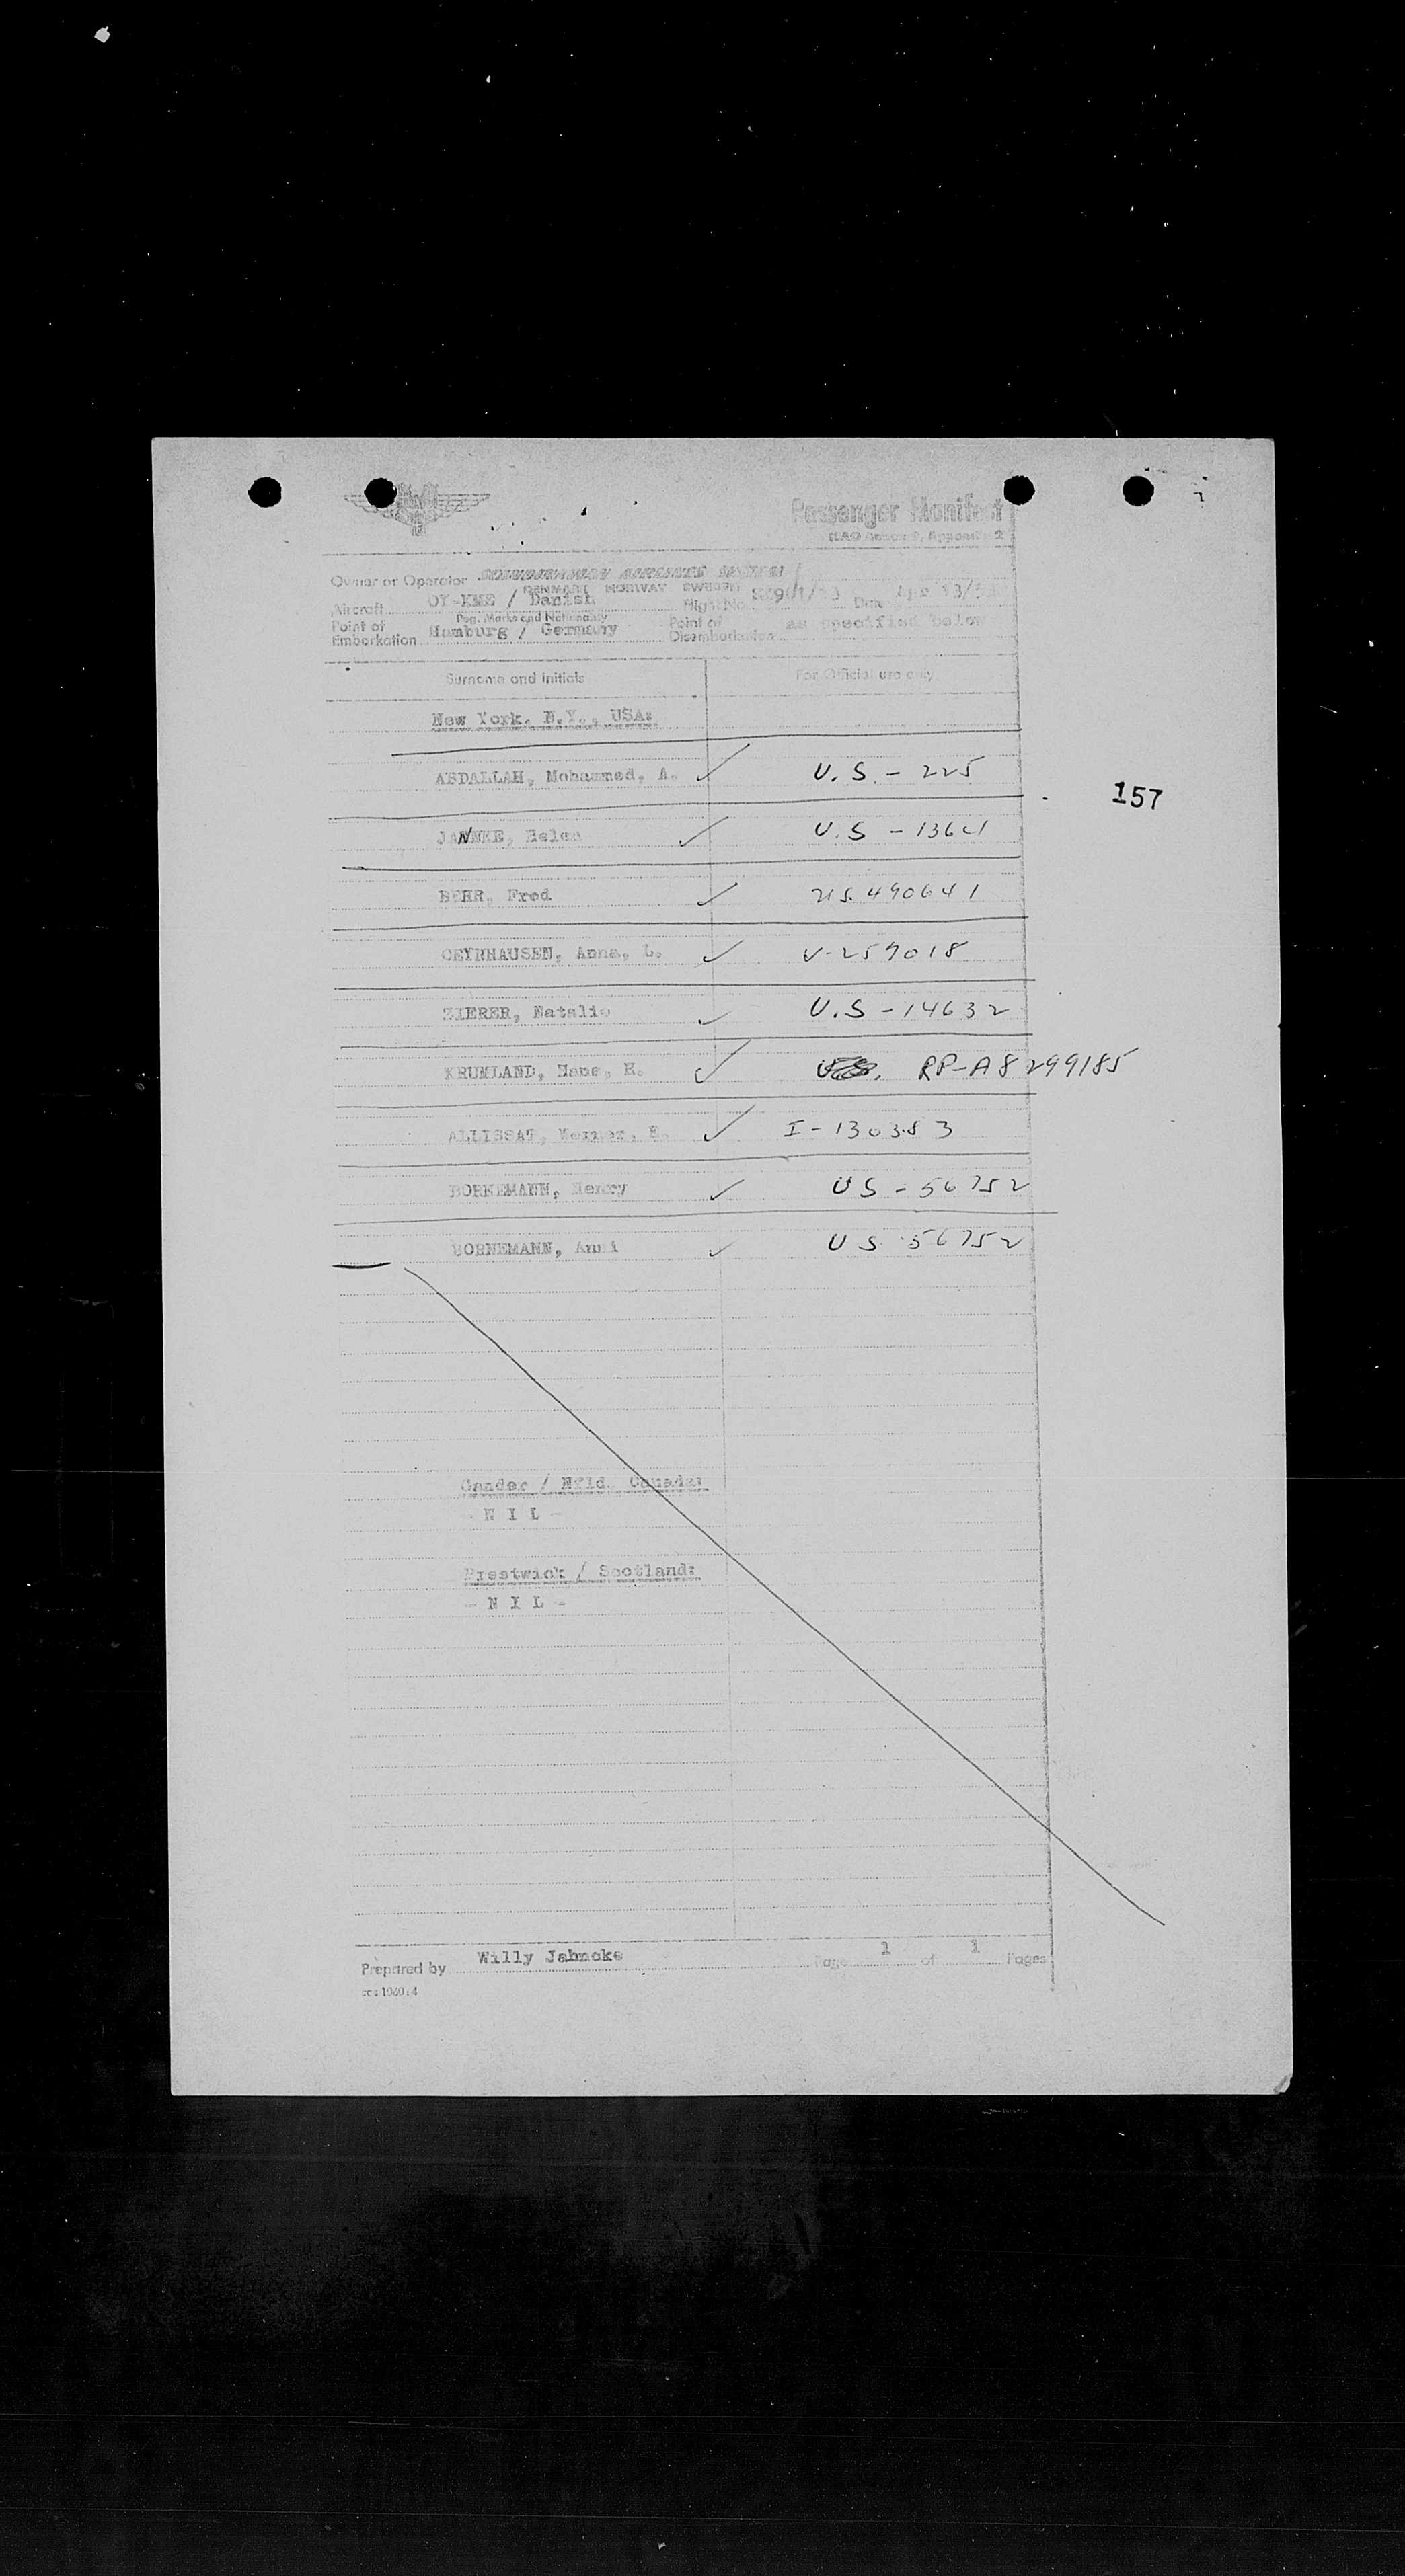 Passenger Manifest
ICAO Annex 9, Appendix 2
Owner or Operator SCANDINAVIAN AIRLINES SYSTEM
DENMARK NORWAY SWEDEN
Aircraft OY-KME / Danish Flight No. SK901/13 Date Apr 13/53
Reg. Marks and Nationality
Point of Embarkation Hamburg / Germany Point of Disembarkation as specified below
Surname and Initials For Official use only
New York, N.Y., USA:
ABDALLAH, Mohammed, A. ✓ U.S. - 225
157
JANNKE, Helen ✓ U.S - 1364
BEHR, Fred ✓ US. 490641
OEYNHAUSEN, Anna, L. ✓ V-259018
ZIERER, Natalie ✓ U.S - 14632
KRUMLAND, Hans, H. ✓ RP-A8299185
ALLISSAT, Werner, ✓ I-130383
BORNEMANN, Henry ✓ US - 56752
BORNEMANN, Anni ✓ US 56752
Gander / Nfld. Canada:
- N I L -
Prestwick / Scotland:
- N I L -
Prepared by Willy Jahncke Page 1 of 1 Pages